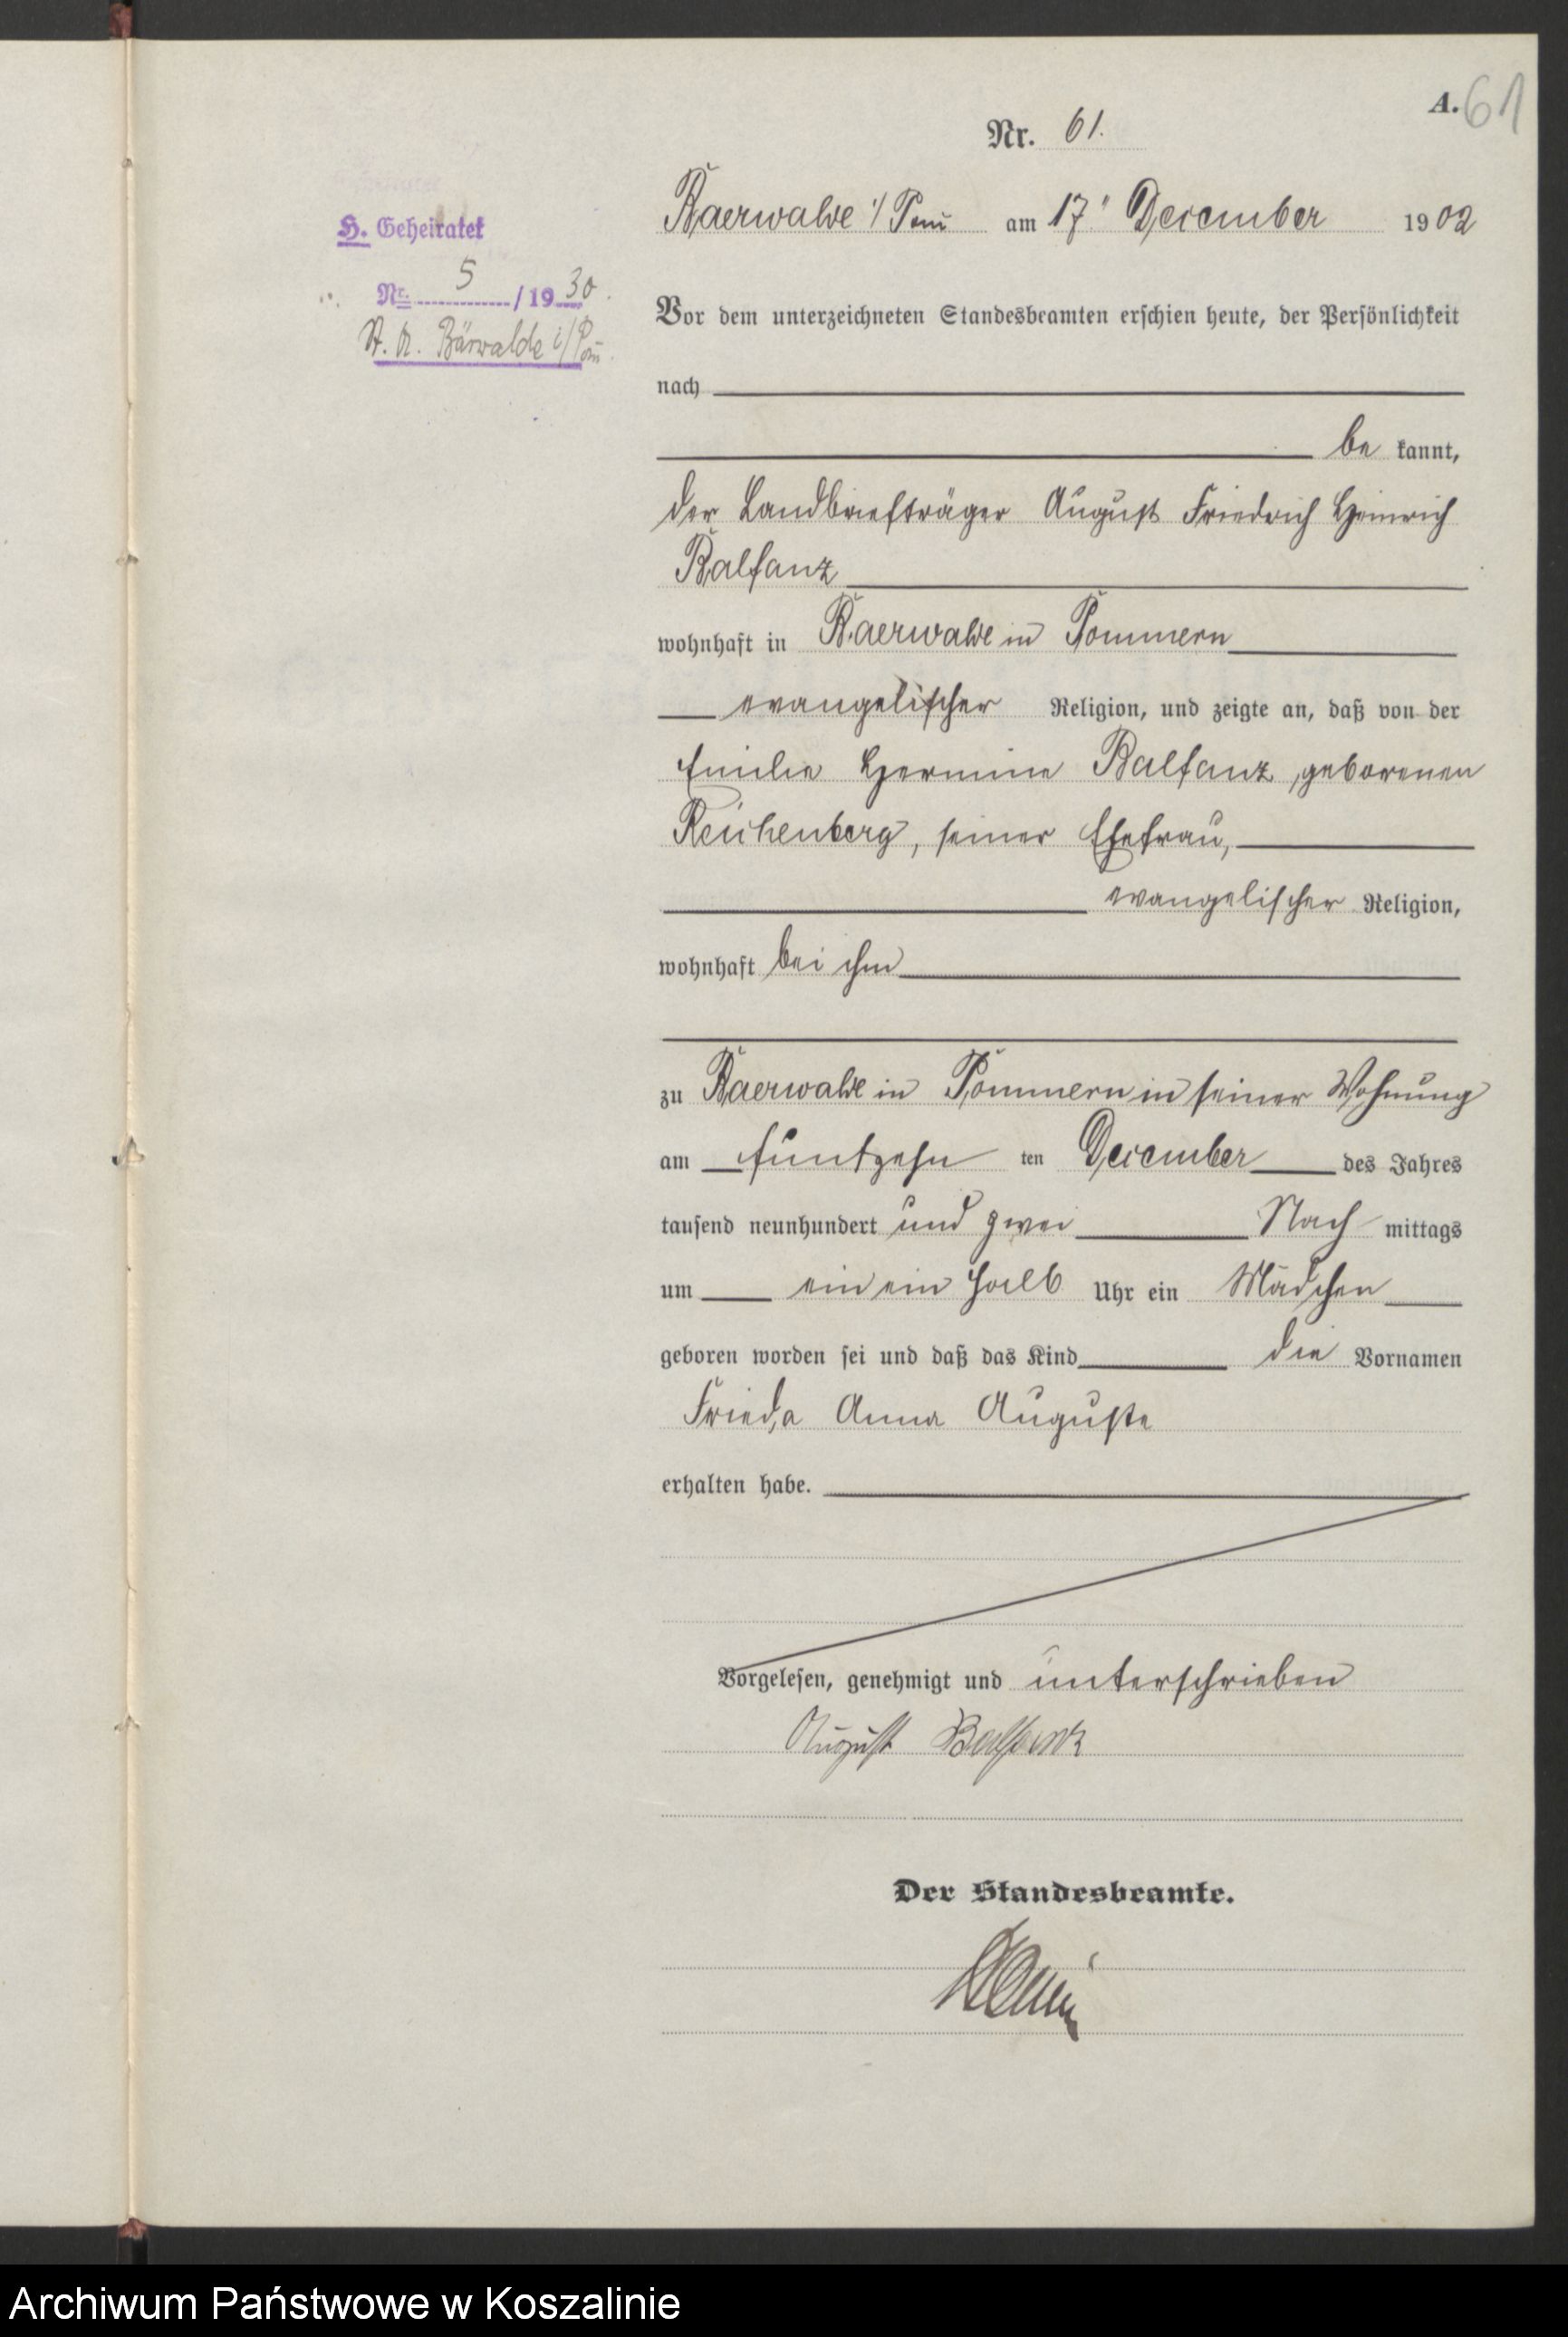 A. 61
Nr. 61.
Baerwalde i/Pom am 17. December 1902
H. Geheiratet
Nr. 5 /1930.
St. A. Bärwalde i/Pom.
Vor dem unterzeichneten Standesbeamten erschien heute, der Persönlichkeit
nach
be kannt,
der Landbriefträger August Friedrich Heinrich
Balfanz
wohnhaft in Baerwalde in Pommern
evangelischer Religion, und zeigte an, daß von der
Emilie Hermine Balfanz, geborenen
Reichenberg, seiner Ehefrau,
evangelischer Religion,
wohnhaft bei ihm
zu Baerwalde in Pommern in seiner Wohnung
am fünfzehn ten December des Jahres
tausend neunhundert und zwei Nach mittags
um ein ein halb Uhr ein Mädchen
geboren worden sei und daß das Kind die Vornamen
Frieda Anna Auguste
erhalten habe.
Vorgelesen, genehmigt und unterschrieben
August Balfanz
Der Standesbeamte.
Archiwum Państwowe w Koszalinie